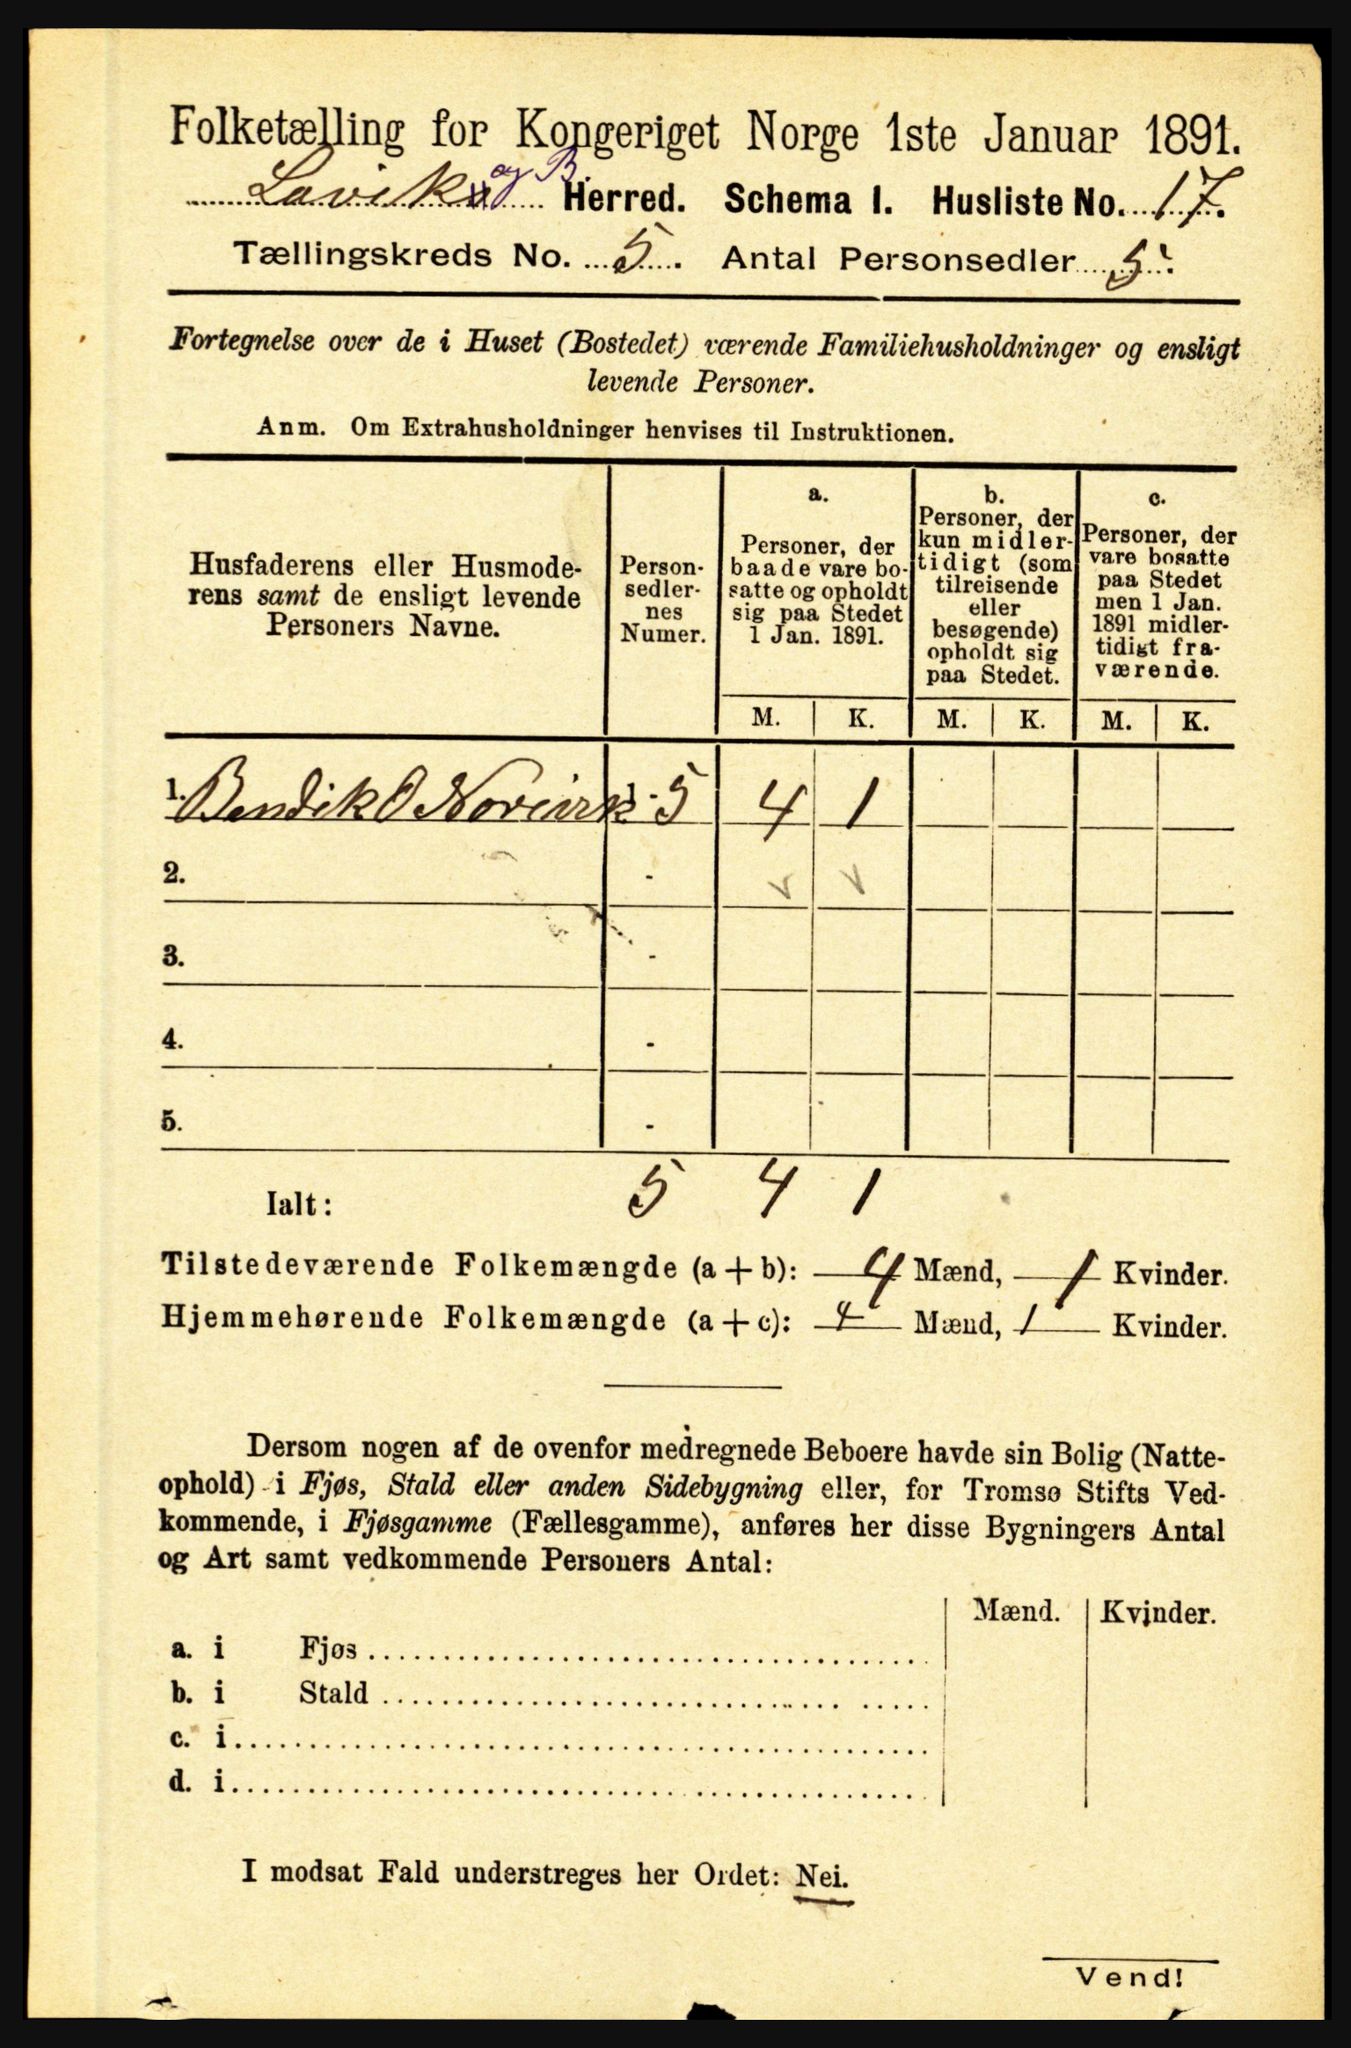 Folketælling for Kongeriget Norge 1ste Januar 1891.
Lavik og B. Herred. Schema I. Husliste No. 17.
Tællingskreds No. 5. Antal Personsedler 5.
Fortegnelse over de i Huset (Bostedet) værende Familiehusholdninger og ensligt
levende Personer.
Anm. Om Extrahusholdninger henvises til Instruktionen.
Husfaderens eller Husmode-
rens samt de ensligt levende
Personers Navne.
Person-
sedler-
nes
Numer.
a.
Personer, der
baade vare bo-
satte og opholdt
sig paa Stedet
1 Jan. 1891.
b.
Personer, der
kun midler-
tidigt (som
tilreisende
eller
besøgende)
opholdt sig
paa Stedet.
c.
Personer, der
vare bosatte
paa Stedet
men 1 Jan.
1891 midler-
tidigt fra-
værende.
M. K. M. K. M. K.
1. Bendik O 1-5 4 1
2. - v v
3. -
4. -
5. -
Ialt: 5 4 1
Tilstedeværende Folkemængde (a + b): 4 Mænd, 1 Kvinder.
Hjemmehørende Folkemængde (a + c): 4 Mænd, 1 Kvinder.
Dersom nogen af de ovenfor medregnede Beboere havde sin Bolig (Natte-
ophold) i Fjøs, Stald eller anden Sidebygning eller, for Tromsø Stifts Ved-
kommende, i Fjøsgamme (Fællesgamme), anføres her disse Bygningers Antal
og Art samt vedkommende Personers Antal:
Mænd. Kvinder.
a. i Fjøs
b. i Stald
c. i
d. i
I modsat Fald understreges her Ordet: Nei.
Vend!